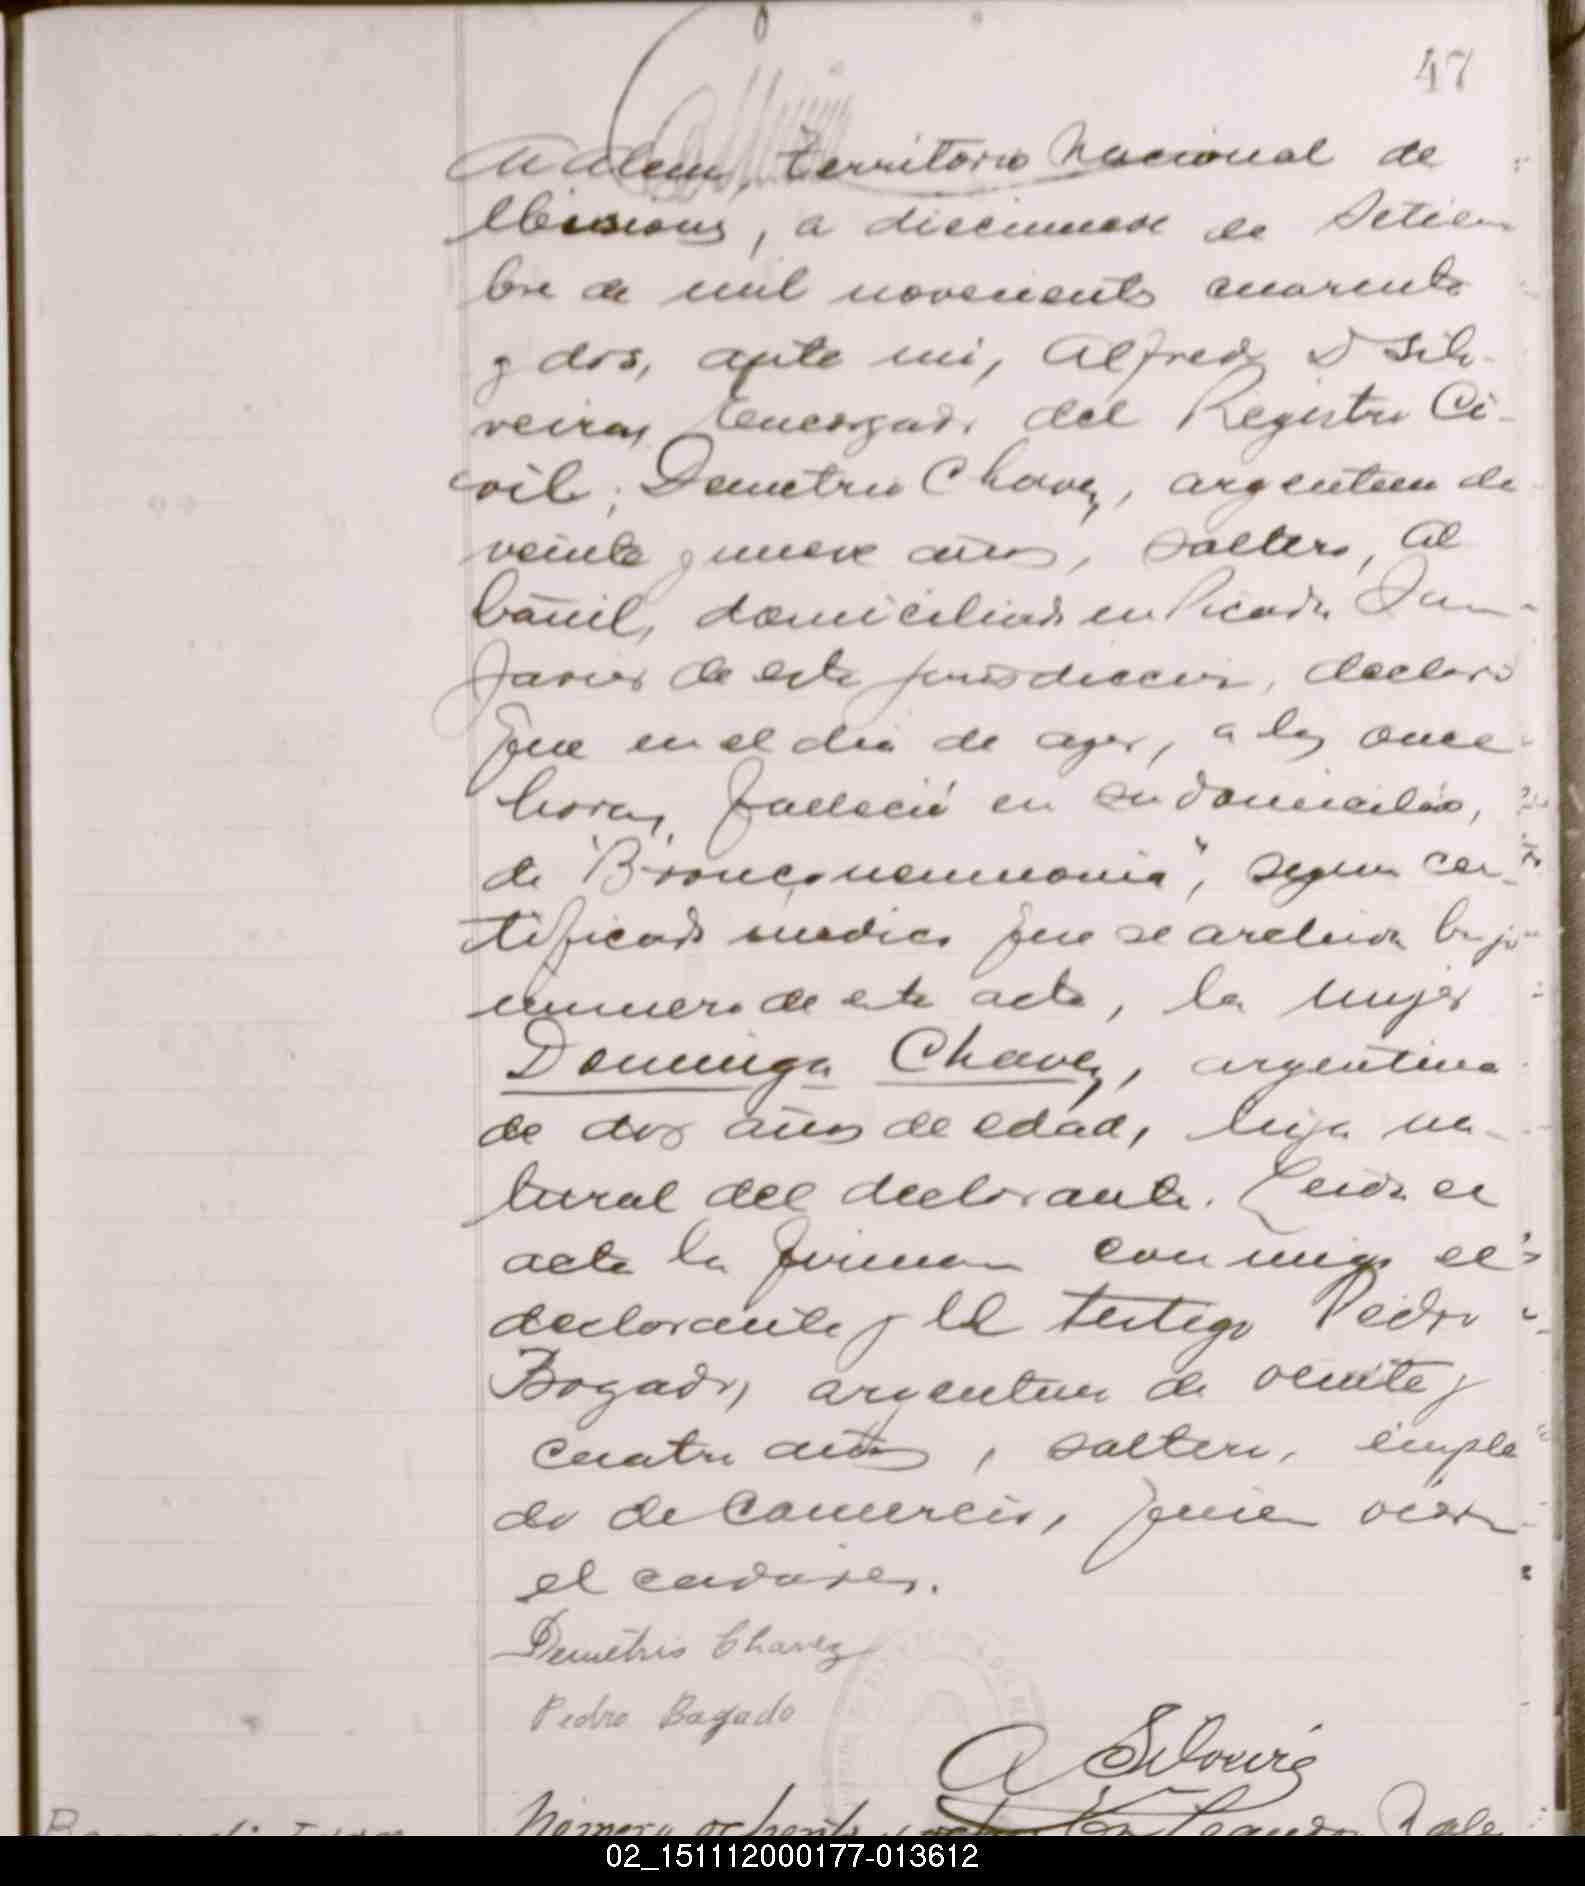 47
N Alem, Territorio Nacional de
Misiones, a diecinueve de Setiem
bre de mil novecientos cuarenta
y dos, ante mi, Alfredo D Sil-
veira, Encargado del Registro Ci-
vil; Demetrio Chavez, argentino de
veinte y nueve años, soltero, al
bañil, domiciliado en Picada San
Javier de esta jurisdiccion, declaró
que en el dia de ayer, a las once
horas, falleció en su domicilio,
de "Bronconeumonia", segun cer-
tificado medico que se archiva bajo
numero de esta acta, la mujer
Dominga Chavez, argentina
de dos años de edad, hija na-
tural del declarante. Leida el
acta la firman conmigo el
declarante y el testigo Pedro
Bogado, argentino de veinte y
cuatro años, soltero, emplea
do de Comercio, quien vieron
el cadaver.
Demétrio Chavez
Pedro Bagado
A Silveira
Número ochenta y ocho En Leandro
02_151112000177-013612